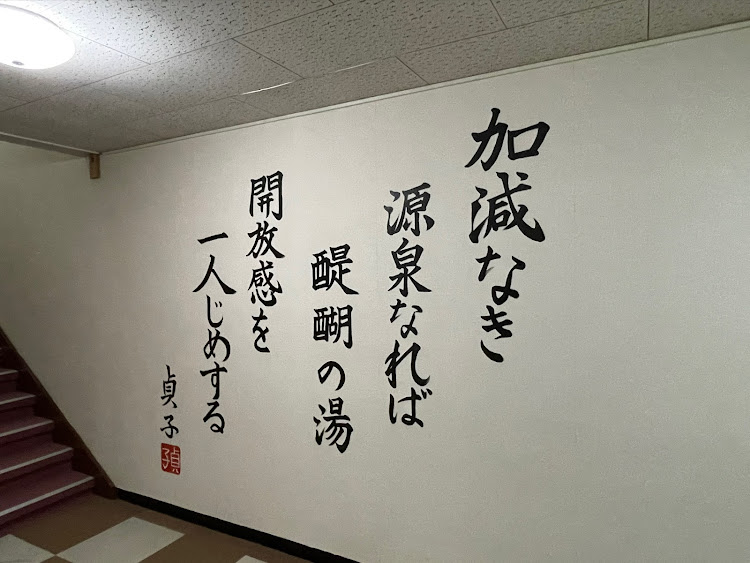 加減なき
源泉なれば
醍醐の湯
開放感を
一人じめする
貞子
貞子